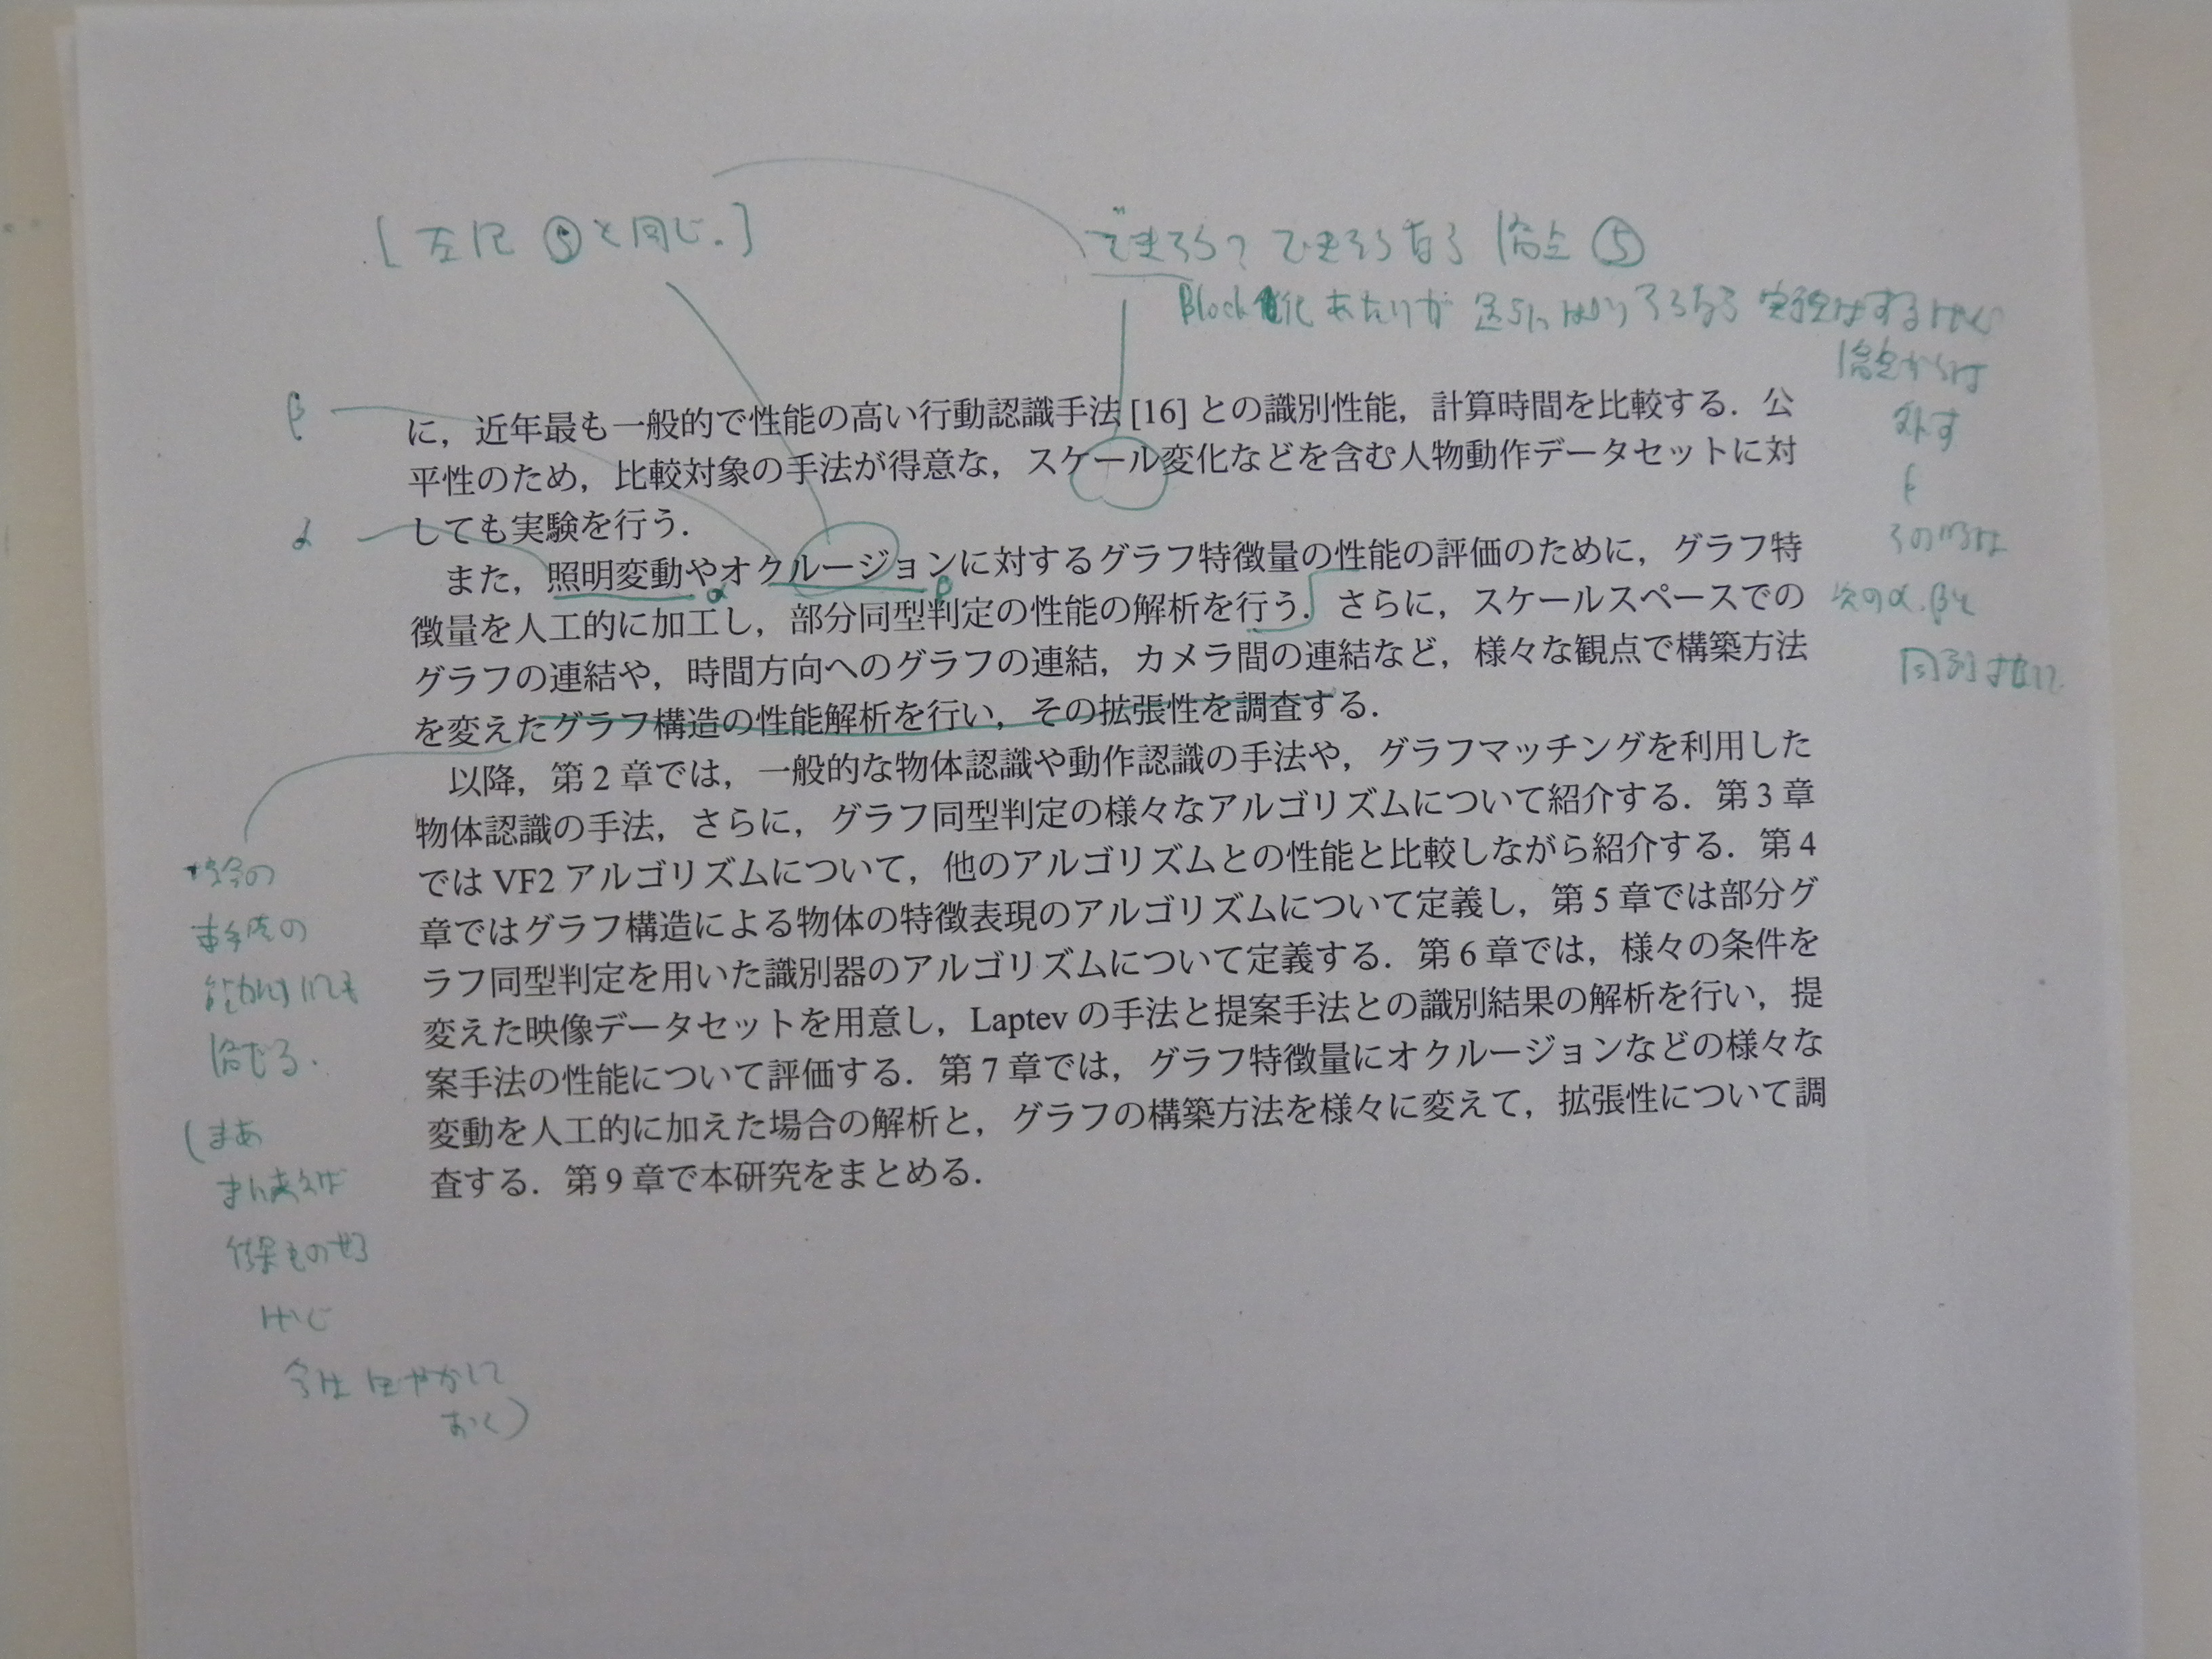 [左に⑤と同じ.]
できそう？できそうなら論点⑤
Block化あたりが
実験はするけど
論点からは
外す
β
に，近年最も一般的で性能の高い行動認識手法 [16] との識別性能，計算時間を比較する．公
平性のため，比較対象の手法が得意な，スケール変化などを含む人物動作データセットに対
α
しても実験を行う．
また，照明変動やオクルージョンに対するグラフ特徴量の性能の評価のために，グラフ特
α
β
徴量を人工的に加工し，部分同型判定の性能の解析を行う．さらに，スケールスペースでの
次のα.βと
グラフの連結や，時間方向へのグラフの連結，カメラ間の連結など，様々な観点で構築方法
を変えたグラフ構造の性能解析を行い，その拡張性を調査する．
以降，第 2 章では，一般的な物体認識や動作認識の手法や，グラフマッチングを利用した
物体認識の手法，さらに，グラフ同型判定の様々なアルゴリズムについて紹介する．第 3 章
では VF2 アルゴリズムについて，他のアルゴリズムとの性能と比較しながら紹介する．第 4
章ではグラフ構造による物体の特徴表現のアルゴリズムについて定義し，第 5 章では部分グ
ラフ同型判定を用いた識別器のアルゴリズムについて定義する．第 6 章では，様々の条件を
変えた映像データセットを用意し，Laptev の手法と提案手法との識別結果の解析を行い，提
案手法の性能について評価する．第 7 章では，グラフ特徴量にオクルージョンなどの様々な
変動を人工的に加えた場合の解析と，グラフの構築方法を様々に変えて，拡張性について調
査する．第 9 章で本研究をまとめる．
論じる.
(まあ
今は
おく)